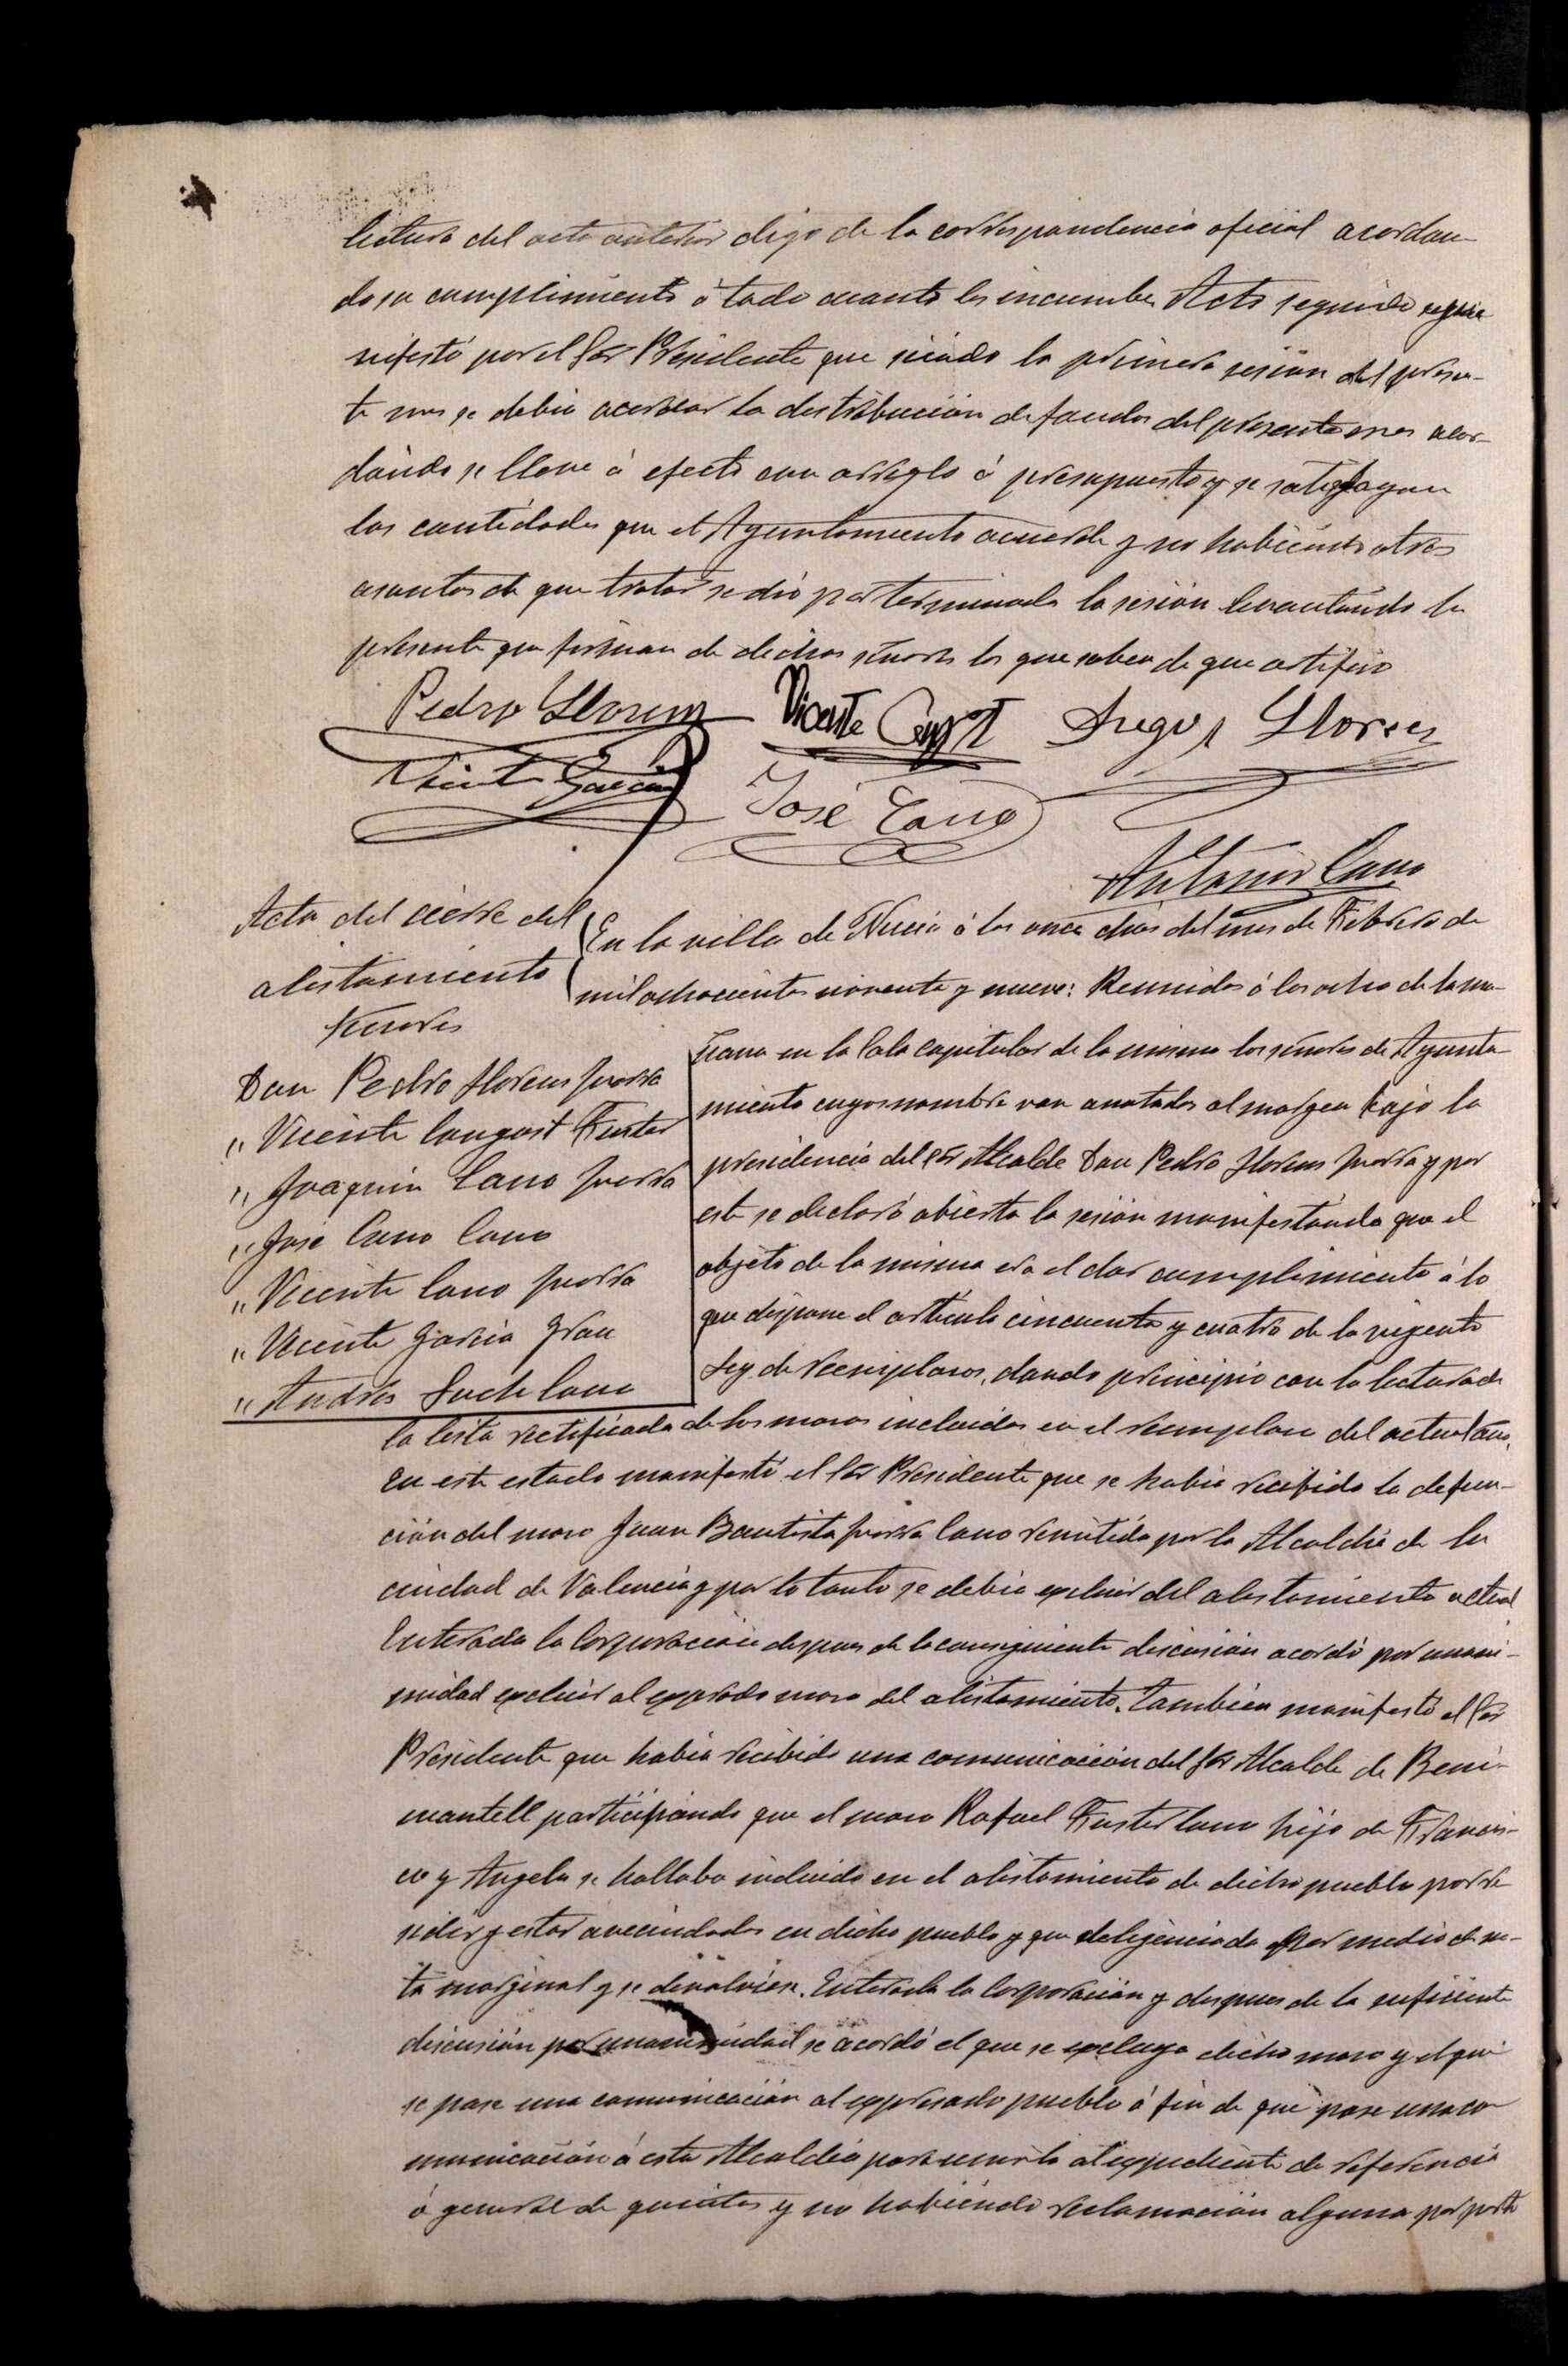 lectura del acta anterior digo de la correspondencia oficial acordan-
do su cumplimiento á todo cuanto les incumbe. Acto seguido se ma
nifestó por el Sór Presidente que siendo la primera sesion del presen-
te mes se debia acordar la distribucion de fondos del presente mes acor-
dando se lleve á efecto con arreglo á presupuesto y se satisfagan
las cantidades que el Ayuntamiento acuerde y no habiendo otros
asuntos de que tratar se dió por terminada la sesión levantando la
presente que firman de dichos señores los que saben de que certifico
Pedro Llorens Vicente Congost Llorens
Vicente Garcia José Cano
Antonio Cano
Acta del cierre del
alistamiento
Señores
Don Pedro Llorens Yvorra
" Vicente Congost Fuster
" Joaquin Cano Yvorra
" José Cano Cano
" Vicente Cano Yvorra
" Vicente Garcia Grau
" Andrés Such Cano
En la villa de Nucia á los once dias del mes de Febrero de
mil ochocientos noventa y nueve: Reunidos á las ocho de la ma-
ñana en la Sala capitular de la misma los señores de Ayunta
miento cuyos nombre van anotados al margen bajo la
presidencia del Sór Alcalde Don Pedro Llorens Yvorra y por
este se declaró abierta la sesión manifestando que el
objeto de la misma era el dar cumplimiento á lo
que dispone el articulo cincuenta y cuatro de la vigente
Ley de reemplazos, dando principio con la lectura de
la lista rectificada de los mozos incluidos en el reemplazo del actual año.
En este estado manifestó el Sór Presidente que se habia recibido la defun-
ción del mozo Juan Bautista Yvorra Cano remitida por la Alcaldia de la
ciudad de Valencia y por lo tanto se debia excluir del alistamiento actual
Enterada la Corporación despues de la consiguiente discusión acordó por unani-
midad excluir al expresado mozo del alistamiento. Tambien manifestó el Sór
Presidente que habia recibido una comunicación del Sór Alcalde de Beni-
mantell participando que el mozo Rafael Fuster Cano hijo de Francis-
co y Angela se hallaba incluido en el alistamiento de dicho pueblo por re
sidir y estar avecindados en dicho pueblo y que deligenciada por medio de no-
ta marginal y se devolviese. Enterada la Corporación y despues de la suficiente
discusión por unanimidad se acordó el que se excluya dicho mozo y el que
se pase una comunicación al expresado pueblo á fin de que pase una co
municación á esta Alcaldia para unirla al expediente de referencia
ó general de quintas y no habiendo reclamación alguna por parte